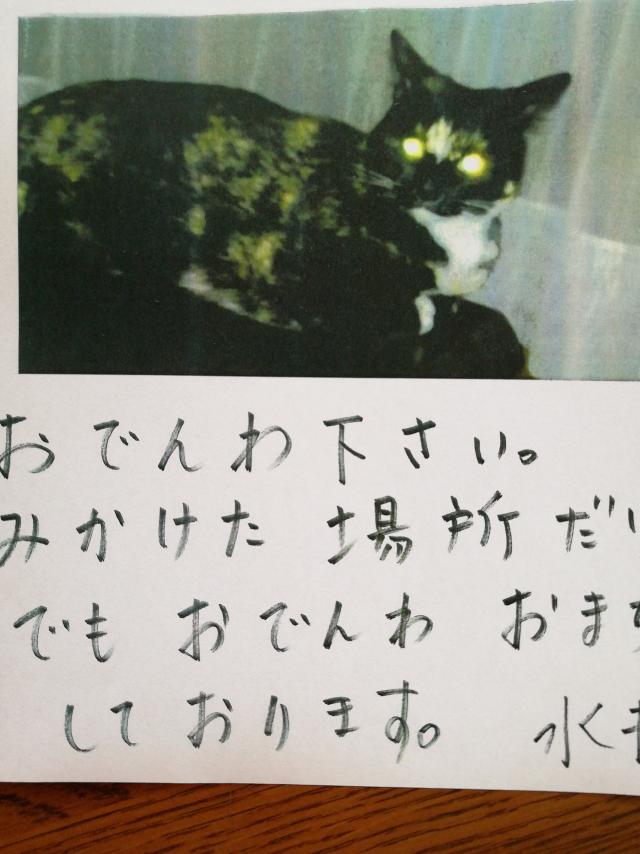 おでんわ下さい。
みかけた場所だけ
でもおでんわおます
しております。 水